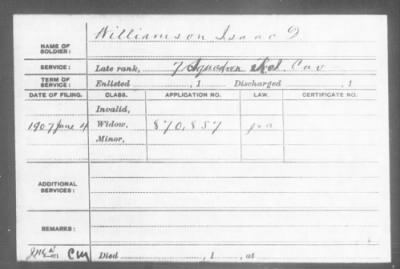 Williamson Isaac D
NAME OF SOLDIER:
SERVICE: Late rank, Squadron Cav
TERM OF SERVICE: Enlisted , 1 Discharged , 1
DATE OF FILING. CLASS. APPLICATION NO. LAW. CERTIFICATE NO.
Invalid,
1907 June Widow, 870,857
Minor,
ADDITIONAL SERVICES:
REMARKS:
Died , 1 , at